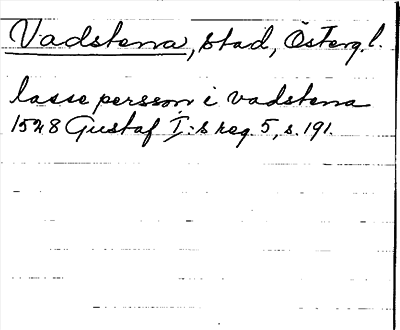 Vadstena, stad, Österg.l.
lasse persson i vadstena
1528 Gustaf I:s reg. 5, s. 191.